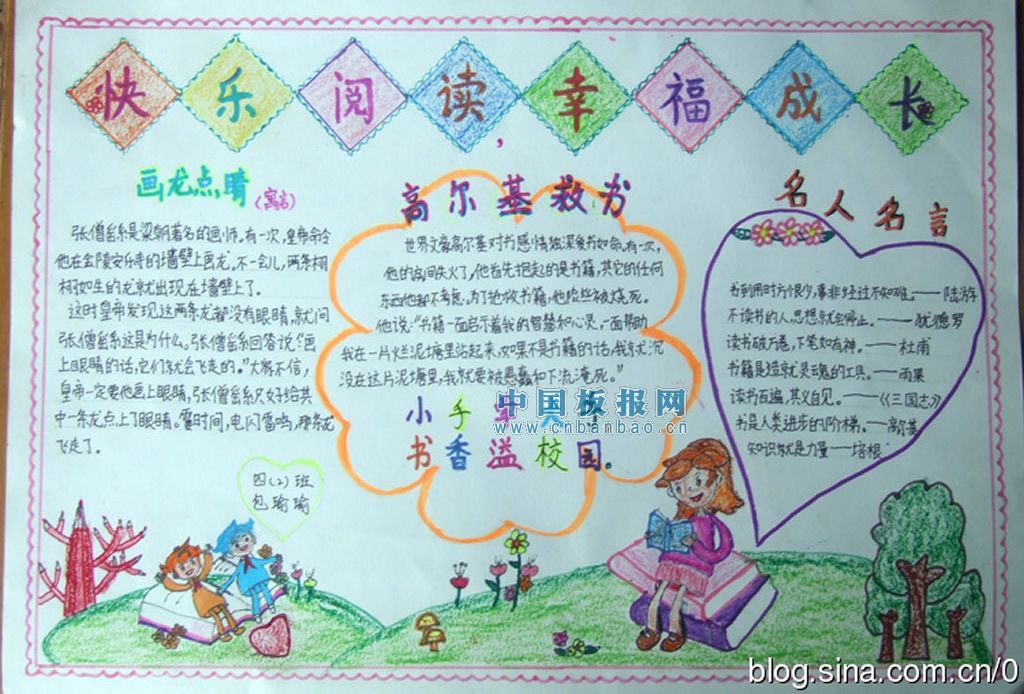 快乐阅读,幸福成长
画龙点睛(寓言)
张僧繇是梁朝著名的画师。有一次,皇帝命令
他在金陵安乐寺的墙壁上画龙。不一会儿,两条栩
栩如生的龙就出现在墙壁上了。
这时皇帝发现这两条龙都没有眼睛,就问
张僧繇这是为什么。张僧繇回答说:“画
上眼睛的话,它们就会飞走的。”大家不信,
皇帝一定要他画上眼睛,张僧繇只好给其
中一条龙点上了眼睛。霎时间,电闪雷鸣,那条龙
飞走了。
四(2)班
包瑜瑜
高尔基救书
世界文豪高尔基对书感情独深,爱书如命。有一次,
他的房间失火了,他首先抱起的是书籍,其它的任何
东西他都不考虑。为了抢救书籍,他险些被烧死。
他说:“书籍一面启示着我的智慧和心灵,一面帮助
我在一片烂泥塘里站起来,如果不是书籍的话,我就沉
没在这片泥塘里,我就要被愚蠢和下流淹死。”
小手
书香溢校园。
中国板报网
www.cnbanbao.cn
名人名言
书到用时方恨少,事非经过不知难。——陆游
不读书的人,思想就会停止。——狄德罗
读书破万卷,下笔如有神。——杜甫
书籍是造就灵魂的工具。——雨果
读书百遍,其义自见。——《三国志》
书是人类进步的阶梯。——高尔基
知识就是力量——培根
blog.sina.com.cn/0